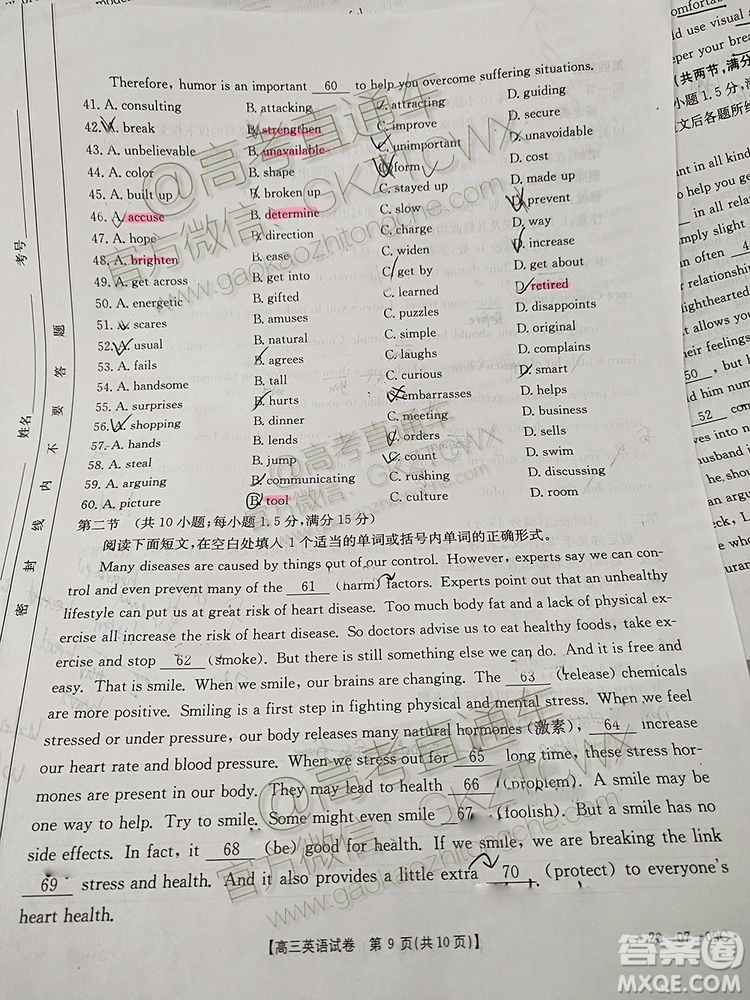 Therefore, humor is an important 60 to help you overcome suffering situations.
41. A. consulting B. attacking C. attracting D. guiding
42. A. break B. strengthen C. improve D. secure
43. A. unbelievable B. unavailable C. unimportant D. unavoidable
44. A. color B. shape C. form D. cost
45. A. built up B. broken up C. stayed up D. made up
46. A. accuse B. determine C. slow D. prevent
47. A. hope B. direction C. charge D. way
48. A. brighten B. ease C. widen D. increase
49. A. get across B. get into C. get by D. get about
50. A. energetic B. gifted C. learned D. retired
51. A. scares B. amuses C. puzzles D. disappoints
52. A. usual B. natural C. simple D. original
53. A. fails B. agrees C. laughs D. complains
54. A. handsome B. tall C. curious D. smart
55. A. surprises B. hurts C. embarrasses D. helps
56. A. shopping B. dinner C. meeting D. business
57. A. hands B. lends C. orders D. sells
58. A. steal B. jump C. count D. swim
59. A. arguing B. communicating C. rushing D. discussing
60. A. picture B. tool C. culture D. room
第二节 (共10小题;每小题1.5分,满分15分)
阅读下面短文,在空白处填入1个适当的单词或括号内单词的正确形式。
Many diseases are caused by things out of our control. However, experts say we can con-
trol and even prevent many of the 61 (harm) factors. Experts point out that an unhealthy
lifestyle can put us at great risk of heart disease. Too much body fat and a lack of physical ex-
ercise all increase the risk of heart disease. So doctors advise us to eat healthy foods, take ex-
ercise and stop 62 (smoke). But there is something else that we can do. And it is free and
easy. That is smile. When we smile, our brains are changing. The 63 (release) chemicals
are more positive. Smiling is a great first step in fighting physical and mental stress. When we feel
stressed or under pressure, our body releases many natural hormones (激素), 64 increase
our heart rate and blood pressure. When we stress out for 65 long time, these stress hor-
mones are present in our body. They may lead to health 66 (problem). A smile may be
one way to help. Try to smile. Some might even smile 67 (foolish). But a smile has no
side effects. In fact, it 68 (be) good for health. If we smile, we are breaking the link
69 stress and health. And it also provides a little extra 70 (protect) to everyone's
heart health.
【高三英语试卷 第9页(共10页)】
考号
姓名
密封线内不要答题
@高考直通车
官方微信:GKZTCWX
www.gaokaozhitongche.com
@高考直通车
官方微信:GKZTCWX
@高考直通车
官方微信:GKZTCWX
www.gaokaozhitongche.com
答案圈
MXQE.COM